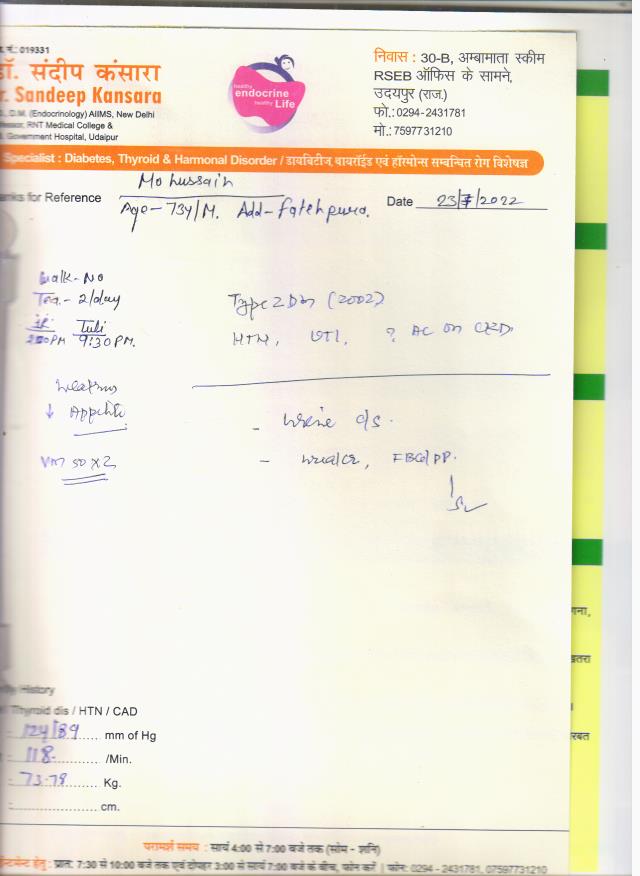 नं.: 019331
डॉ. संदीप कंसारा
Dr. Sandeep Kansara
D.M. (Endocrinology) AIIMS, New Delhi
RNT Medical College &
Government Hospital, Udaipur
healthy
endocrine
healthy Life
निवास : 30-B, अम्बामाता स्कीम
RSEB ऑफिस के सामने,
उदयपुर (राज.)
फो.:0294-2431781
मो.:7597731210
Specialist : Diabetes, Thyroid & Harmonal Disorder / डायबिटीज, थायरॉईड एवं हॉरमोन्स सम्बन्धित रोग विशेषज्ञ
for Reference Mo hussain Date 23/7/2022
Age - 73y/M. Add - Fatehpura.
Walk - No
Tea - 2/day
9:30 PM.
Type 2 Dm (2002)
HTN, UTI, ? AC on CKD
↓ Appetite
- Urine c/s.
- urea/cr, FBG/PP.
50 x 2
History
Thyroid dis / HTN / CAD
124/89 mm of Hg
118 /Min.
73.78 Kg.
cm.
परामर्श समय : सायं 4:00 से 7:00 बजे तक (सोम - शनि)
हेतु : प्रातः 7:30 से 10:00 बजे तक एवं दोपहर 3:00 से सायं 7:00 बजे के बीच, फोन करें | फोन: 0294 - 2431781, 07597731210